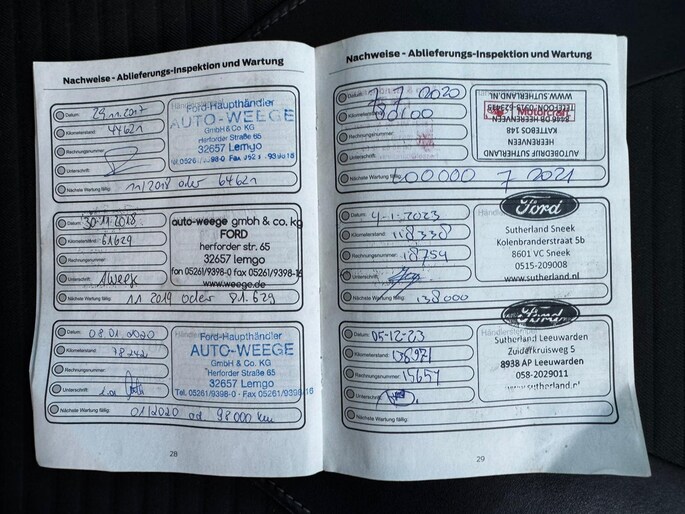 Nachweise - Ablieferungs-Inspektion und Wartung
Datum: 29.11.2017
Kilometerstand: 44621
Rechnungsnummer:
Unterschrift:
Nächste Wartung fällig: 11/2018 oder 64621
Ford-Haupthändler
AUTO-WEEGE
GmbH & Co. KG
Herforder Straße 65
32657 Lemgo
Datum: 30.11.2018
Kilometerstand: 61629
Rechnungsnummer:
Unterschrift:
Nächste Wartung fällig: 11 2019 oder 81.629
auto-weege gmbh & co. kg
FORD
herforder str. 65
32657 lemgo
fon 05261/9398-0 fax 05261/9398-16
www.weege.de
Datum: 08.01.2020
Kilometerstand: 78242
Rechnungsnummer:
Unterschrift:
Nächste Wartung fällig: 01/2020 od. 98000 km
Ford-Haupthändler
AUTO-WEEGE
GmbH & Co. KG
Herforder Straße 65
32657 Lemgo
Tel. 05261/9398-0 - Fax 05261/9398-16
28
Nachweise - Ablieferungs-Inspektion und Wartung
Datum: 7-7-2020
Kilometerstand: 80100
Rechnungsnummer:
Unterschrift:
Nächste Wartung fällig: 100000 7 2021
Motorcraft
AUTOBEDRIJF SUTHERLAND
HEERENVEEN
KATTEBOS 148
8446 DB HEERENVEEN
WWW.SUTHERLAND.NL
Datum: 4-1-2023
Kilometerstand: 118330
Rechnungsnummer: 18754
Unterschrift:
Nächste Wartung fällig: 138000
Ford
Sutherland Sneek
Kolenbranderstraat 5b
8601 VC Sneek
0515-209008
www.sutherland.nl
Datum: 05-12-23
Kilometerstand:
Rechnungsnummer: 15657
Unterschrift:
Nächste Wartung fällig:
Händlerstempel
Ford
Sutherland Leeuwarden
Zuiderkruisweg 5
8938 AP Leeuwarden
058-2029011
www.sutherland.nl
29